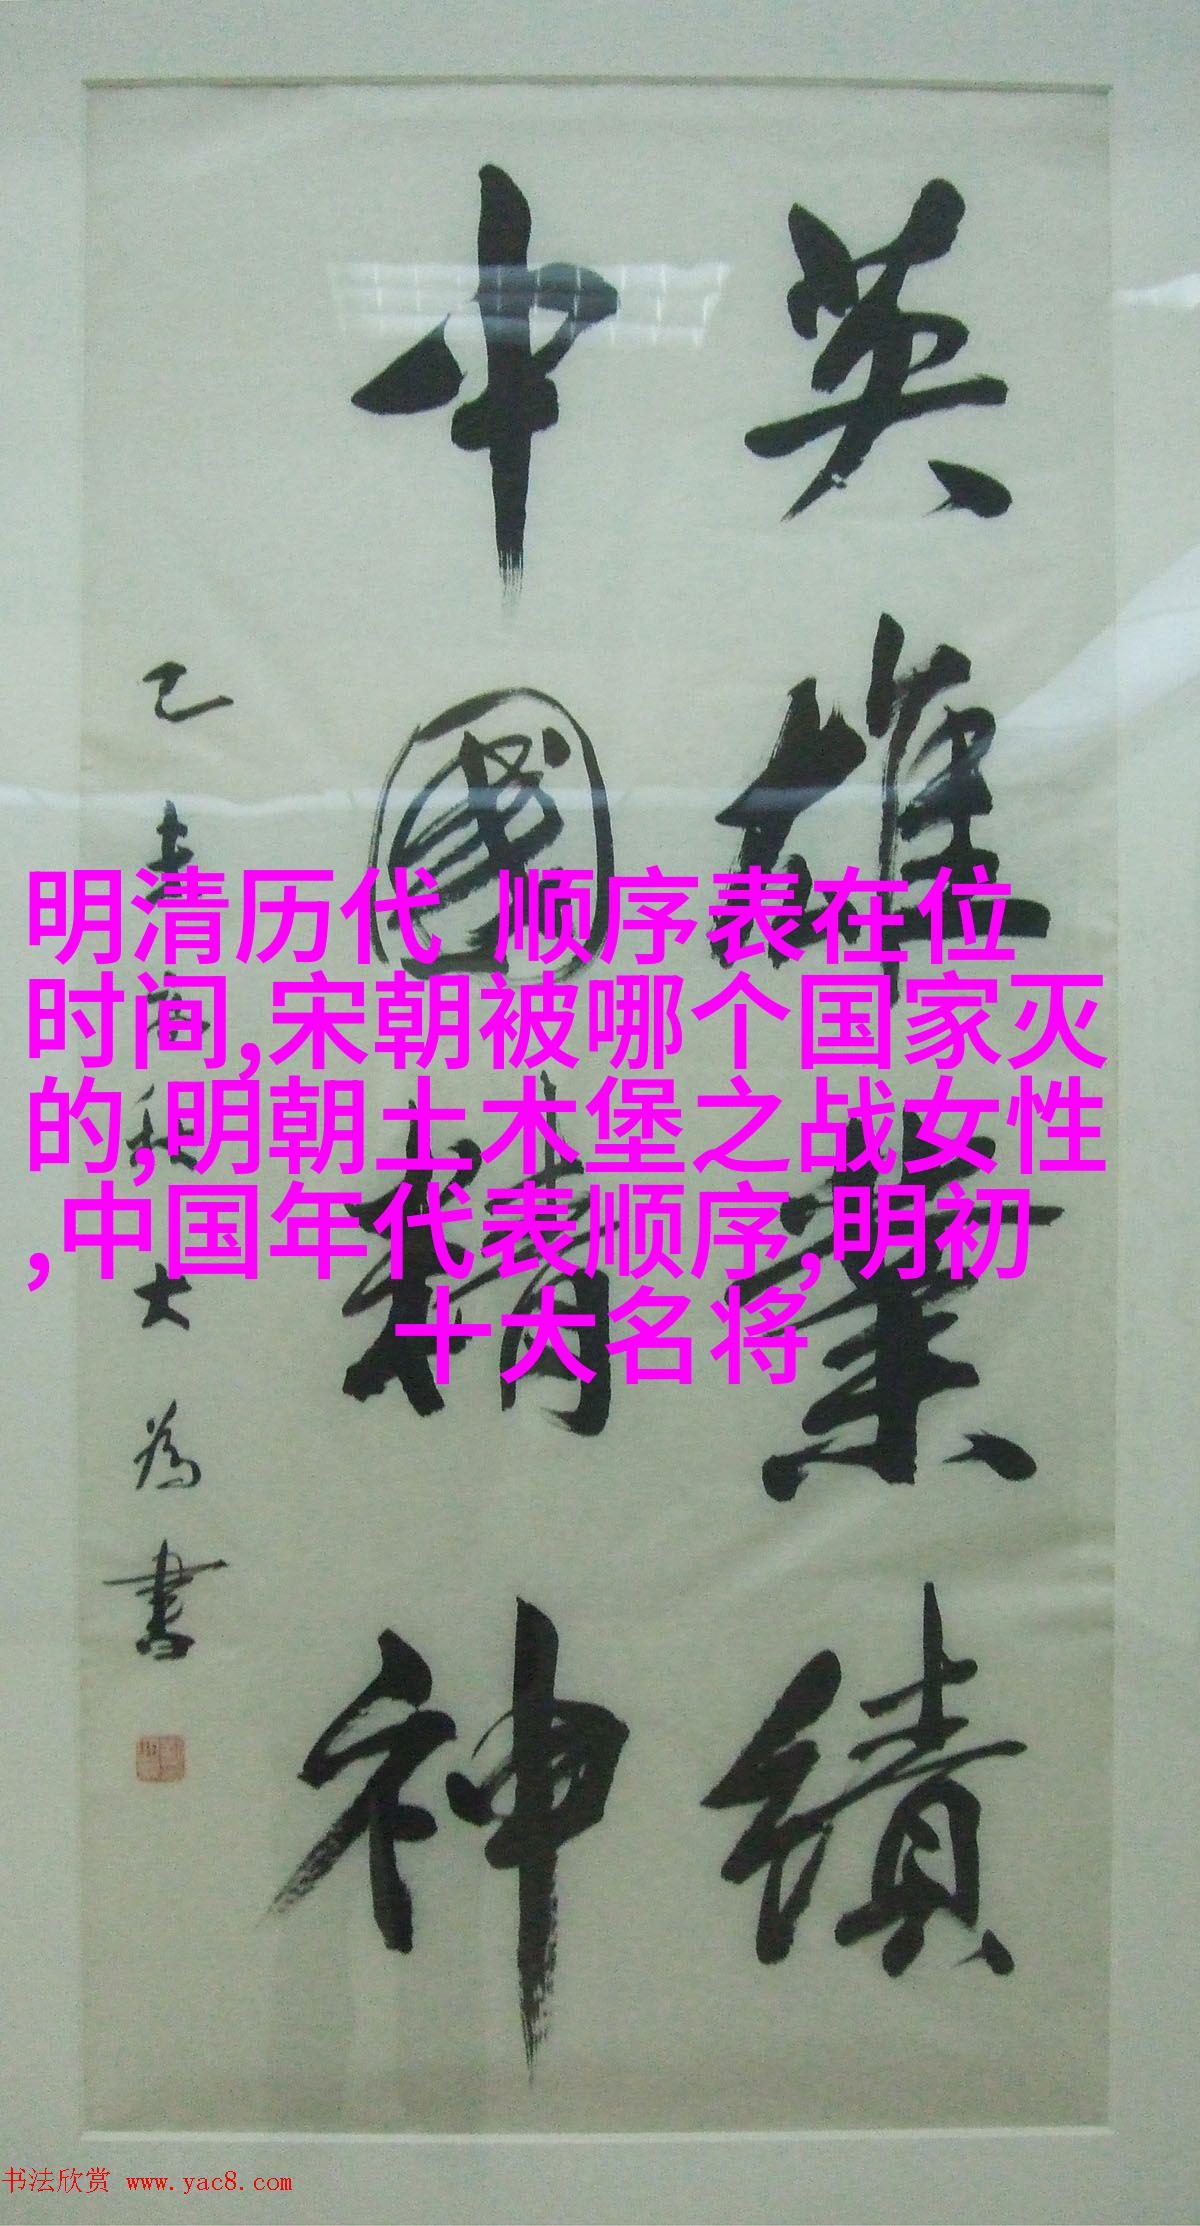 英雄業績
中國精神
乙丑
秋
大為書
明清历代 顺序表在位
时间,宋朝被哪个国家灭
的,明朝土木堡之战女性
,中国年代表顺序,明初
十大名将
书法欣赏 www.yac8.com